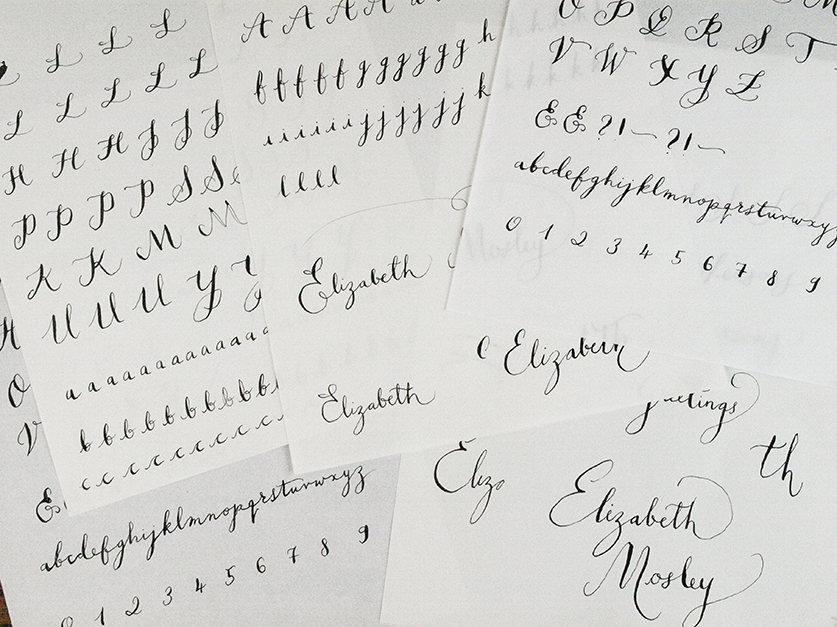 L L L L
L L L L L
H H H J J J
P P P P S S
K K M M
U U U Y
a a a a a a a a a a a
b b b b b b b b b
c c c c c c c c c
A A A A
f f f f f g g g g g g h
i i i i i i j j j j j j k
l l l l
Elizabeth
Elizabeth
O P Q R S T
V W X Y Z
E E ? ! ? !
abcdefghijklmnopqrstuvwxyz
0 1 2 3 4 5 6 7 8 9
H
O
V
E
abcdefghijklmnopqrstuvwxyz
0 1 2 3 4 5 6 7 8 9
th
Eliz
Elizabeth
Mosley